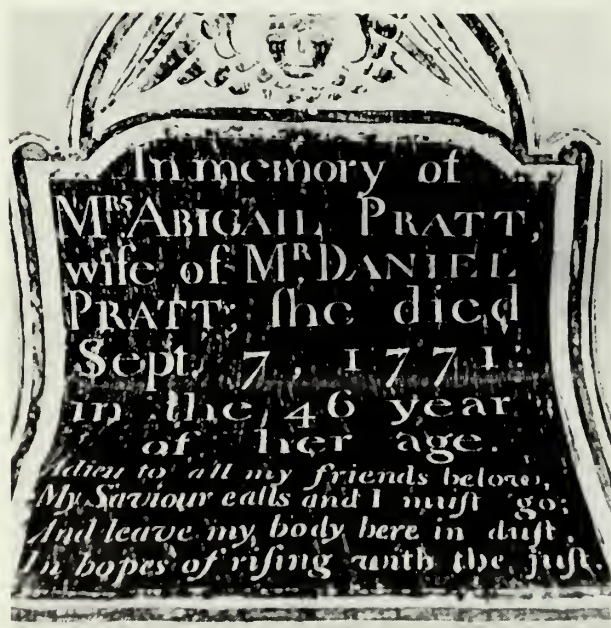 In memory of
Mrs ABIGAIL PRATT,
wife of Mr DANIEL
PRATT; ſhe died
Sept. 7, 1771.
in the 46 year
of her age.
Adieu to all my friends below,
My Saviour calls and I muſt go;
And leave my body here in duſt,
In hopes of riſing with the juſt.